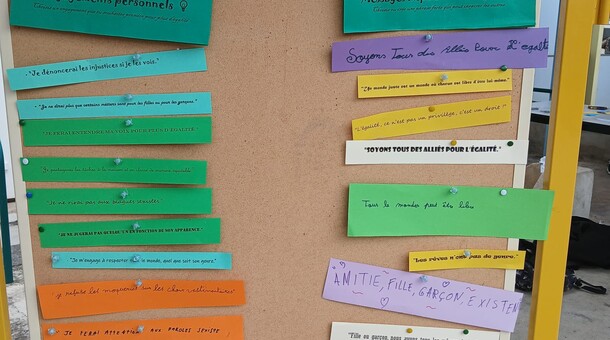 personnels
"Je dénoncerai les injustices si je les vois."
"Je ne dirai plus que certains métiers sont pour les filles ou pour les garçons."
"Je ne rirai pas aux blagues sexistes."
"Je ne jugerai pas quelqu'un en fonction de son apparence."
"Je m'engage à respecter tout le monde, quel que soit son genre."
"je refuse les moqueries sur les choix vestimentaires"
"JE FERAI ATTENTION AUX PAROLES SEXISTE
Soyons Tous des Alliés Pour L'égalité
"Un monde juste est un monde où chacun est libre d'être lui-même."
"L'égalité, ce n'est pas un privilège, c'est un droit!"
"SOYONS TOUS DES ALLIÉS POUR L'ÉGALITÉ."
Tous le monde peut être libre
"Les rêves n'ont pas de genre."
AMITIE, FILLE, GARÇON, EXISTEN
"Fille ou garçon, nous avons tous les